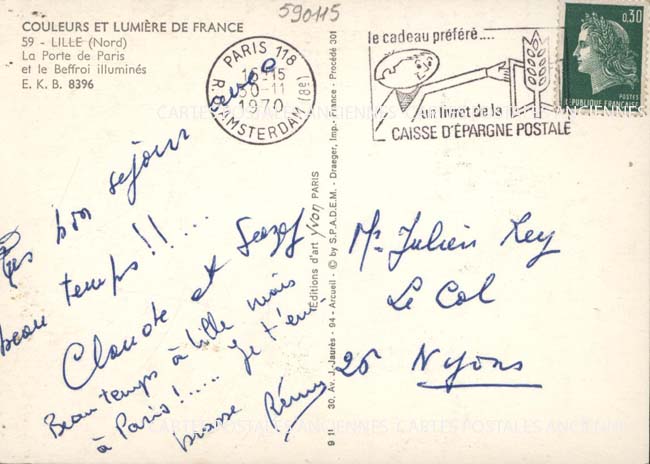 590115
COULEURS ET LUMIÈRE DE FRANCE
59 - LILLE (Nord)
La Porte de Paris
et le Beffroi illuminés
E. K. B. 8396
PARIS 118
30-11
1970
R. D'AMSTERDAM (8e)
le cadeau préféré....
un livret de la
CAISSE D'ÉPARGNE POSTALE
0,30
POSTES
REPUBLIQUE FRANÇAISE
CARTES POSTALES ANCIENNES
bon sejour
beau temps!!.....
Claude et
Beau temps à Lille mais
à Paris!..... Je t'em
brasse Rémy
Editions d'art Yvon PARIS
30, Av. J.-Jaurès - 94 - Arcueil - © by S.P.A.D.E.M. - Draeger, Imp. - France - Procédé 301
9 11
Mr Julien Rey
Le Col
26 Nyons